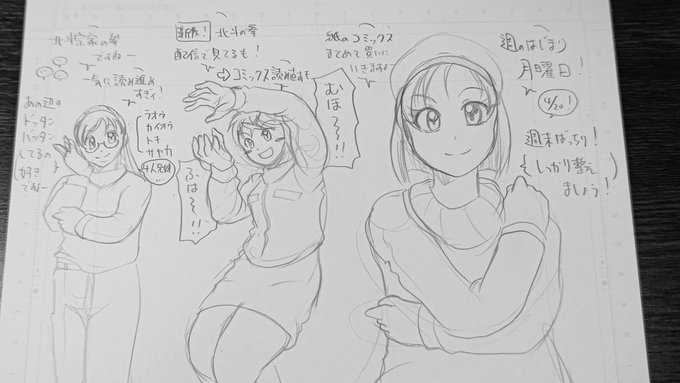 週のはじまり
月曜日！
4/20！
週末ばっちり！
しっかり整え
ましょう！
紙のコミックス
まとめて買いに
いきますよー
むほ〜〜!!
新作！北斗の拳
配信で見てるも！
⇨コミックス読積すも
ふは〜!!
北斗宗家の拳
ですねー
一気に読み進め
すぎィ！
ラオウ
カイオウ
トキ
サヤカ
4人兄妹
あの辺の
ドッタン
バッタン
してるの
好き
でねー